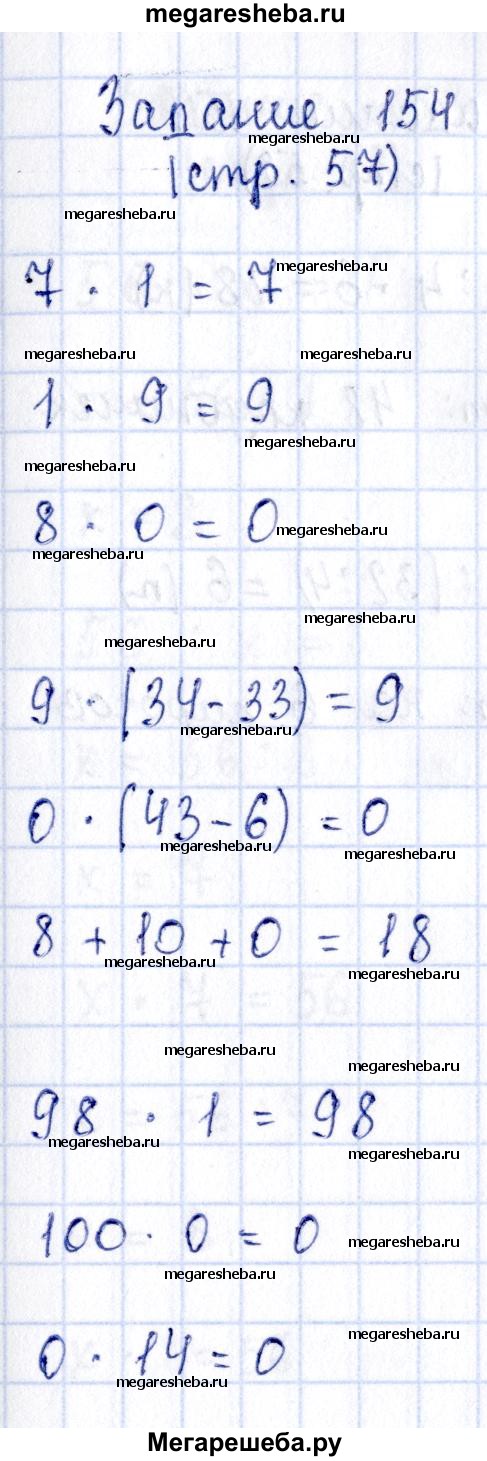 megaresheba.ru
Задание 154
megaresheba.ru
(стр. 57)
megaresheba.ru
megaresheba.ru
7 · 1 = 7
megaresheba.ru megaresheba.ru
1 · 9 = 9
megaresheba.ru
megaresheba.ru
8 · 0 = 0
megaresheba.ru
megaresheba.ru
megaresheba.ru
megaresheba.ru
9 · (34 - 33) = 9
megaresheba.ru
0 · (43 - 6) = 0
megaresheba.ru
megaresheba.ru
8 + 10 + 0 = 18
megaresheba.ru
megaresheba.ru
megaresheba.ru
megaresheba.ru
98 · 1 = 98
megaresheba.ru
megaresheba.ru
100 · 0 = 0
megaresheba.ru
megaresheba.ru
megaresheba.ru
0 · 14 = 0
megaresheba.ru
Мегарешеба.ру